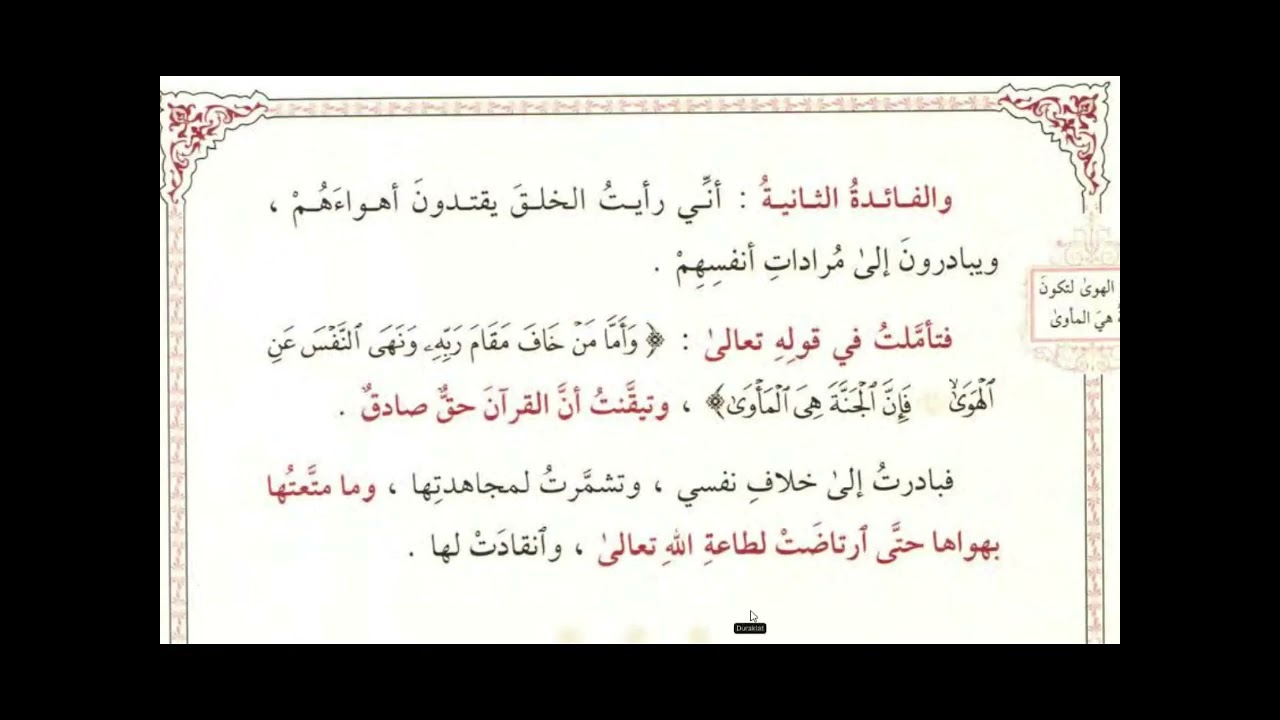 والفائدةُ الثانيةُ : أنِّي رأيتُ الخلقَ يقتدونَ أهواءَهُمْ ،
ويبادرونَ إلىٰ مُراداتِ أنفسِهِمْ .
الهوىٰ لتكونَ
هيَ المأوىٰ
فتأمَّلتُ في قولِهِ تعالىٰ : ﴿ وَأَمَّا مَنْ خَافَ مَقَامَ رَبِّهِۦ وَنَهَى ٱلنَّفْسَ عَنِ
ٱلْهَوَىٰ فَإِنَّ ٱلْجَنَّةَ هِىَ ٱلْمَأْوَىٰ﴾ ، وتيقَّنتُ أنَّ القرآنَ حقٌّ صادقٌ .
فبادرتُ إلىٰ خلافِ نفسي ، وتشمَّرتُ لمجاهدتِها ، وما متَّعتُها
بهواها حتَّى ٱرتاضَتْ لطاعةِ اللهِ تعالىٰ ، وٱنقادَتْ لها .
Duraklat